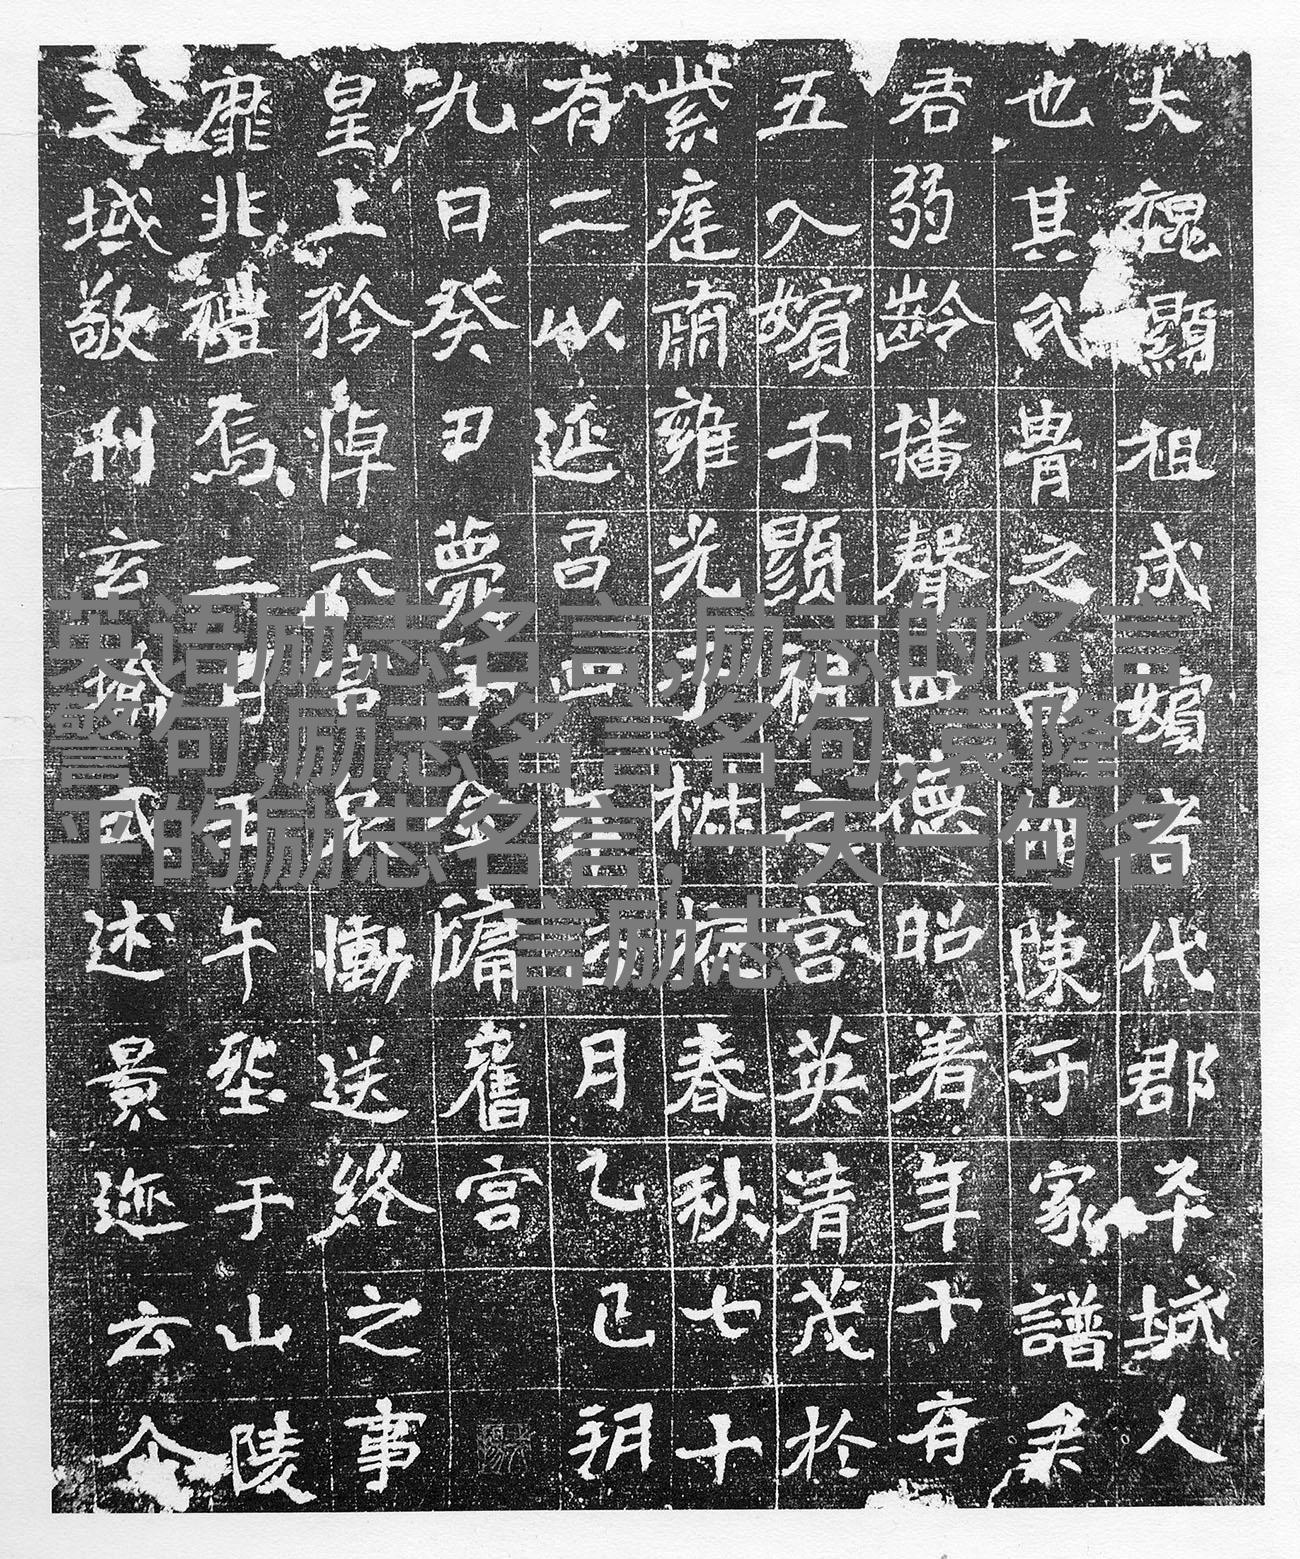 大魏顯祖成嬪者代郡平城人
也其氏胄之由備陳于家譜矣
君弱齡播馨四德昭著年十有
五入嬪于顯祖之宮英清茂於
紫庭肅雍光于椒掖春秋七十
有二以延昌四年正月乙巳朔
九日癸丑薨于金墉舊宮
皇上矜悼六宮哀慟送終之事
靡非禮焉二月壬午塟于山陵
之域敬刊玄式述景迹云尒
英语励志名言,励志的名言
警句,励志名言名句,袁隆
平的励志名言,一天一句名
言励志